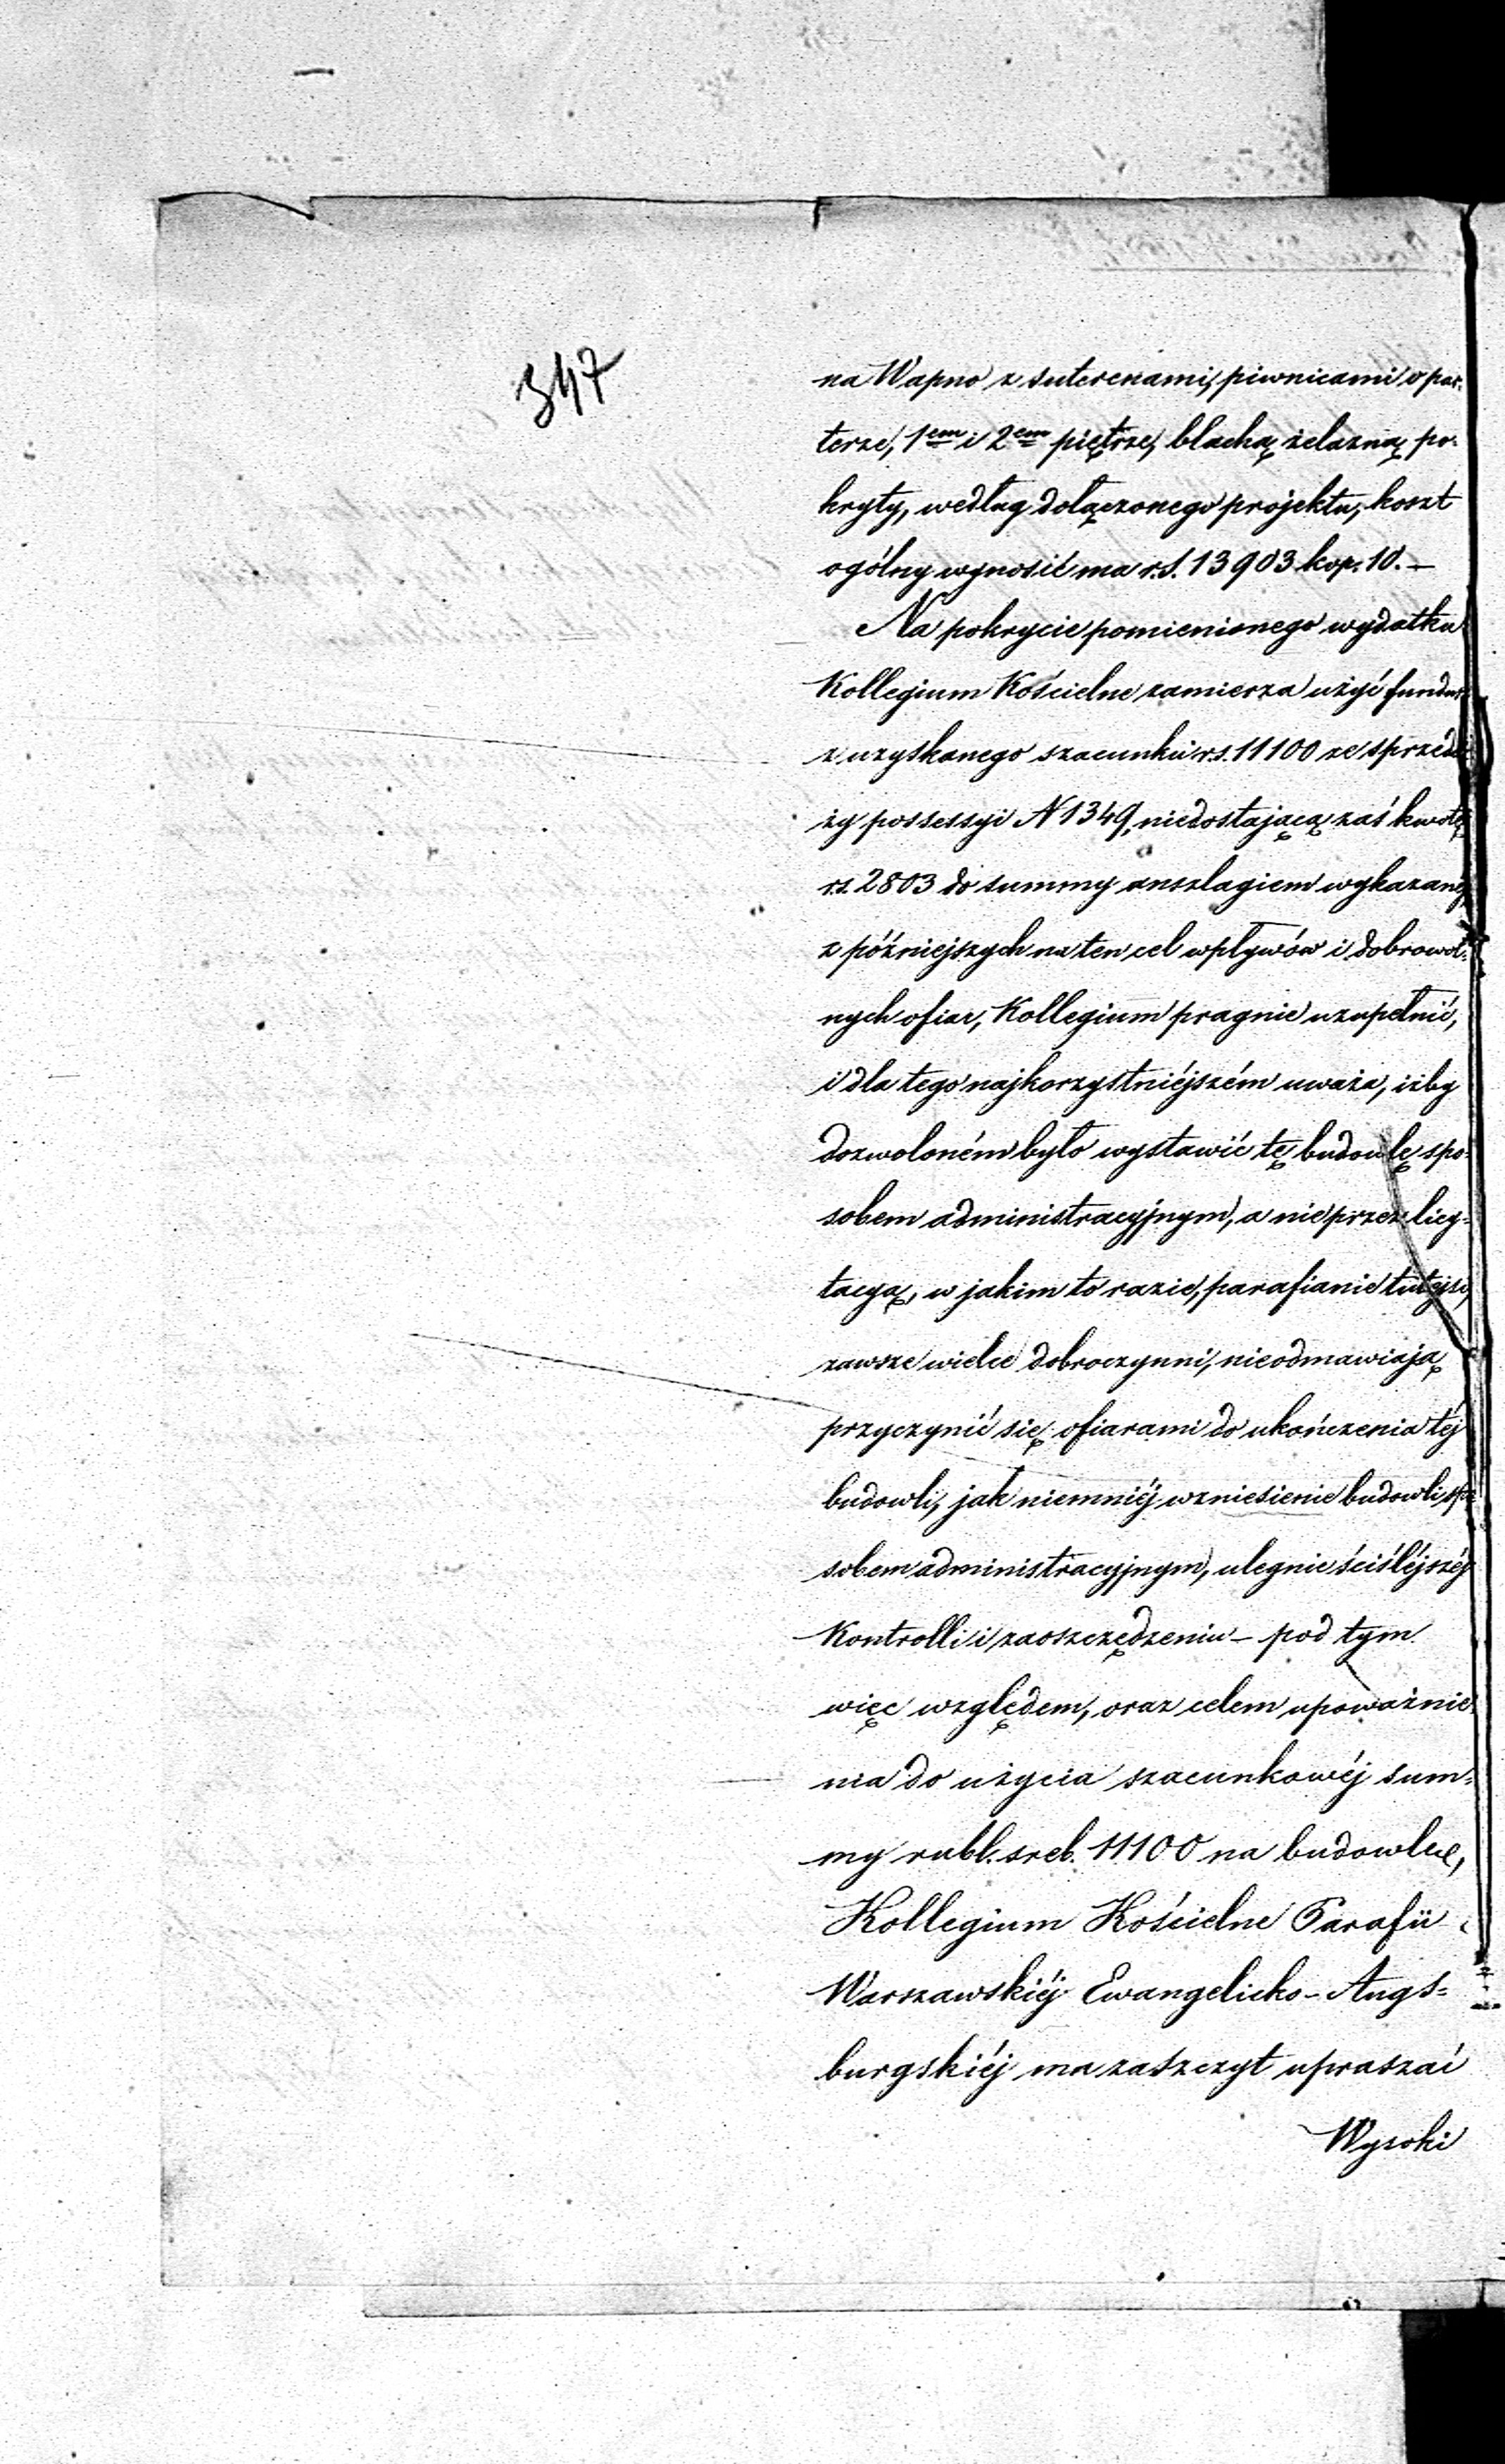 347
na Wapno z suterenami, piwnicami o par-
terze, 1em i 2em piętrze, blachą żelazną po-
kryty, według dołączonego projektu, koszt
ogólny wynosić ma r.s. 13903 kop. 10. —
Na pokrycie pomienionego wydatku
Kollegium Kościelne zamierza użyć
z uzyskanego szacunku r.s. 11100 ze sprzeda
ży possessyi N 1349, niedostającą zaś kwotę
r.s. 2803 do summy anszlagiem wykazanéj
z późniejszych na ten cel wpływów i dobrowol-
nych ofiar, Kollegium pragnie uzupełnić,
i dla tego najkorzystniéjszém uważa, iżby
dozwoloném było wystawić tę budowlę spo-
sobem administracyjnym, a nie przez licy-
tacyą, w jakim to razie, parafianie tutejsi,
zawsze wielce dobroczynni, nieodmawiają
przyczynić się ofiarami do ukończenia téj
budowli, jak niemniéj wzniesienie budowli spo
sobem administracyjnym, ulegnie ściśléjszéj
Kontrolli i zaoszczędzeniu – pod tym
więc względem, oraz celem upoważnie-
nia do użycia szacunkowéj sum-
my rubl. sreb. 11100 na budowlę,
Kollegium Kościelne Parafii
Warszawskiéj Ewangelicko-Augs-
burgskiéj ma zaszczyt upraszać
Wysoki